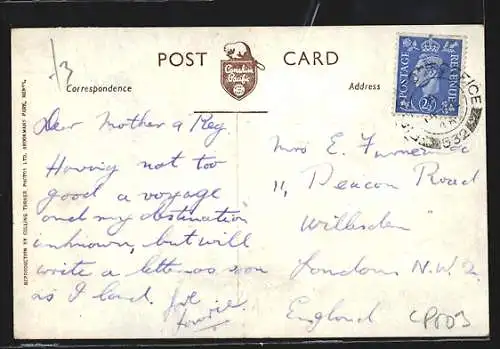 13
POST CARD
Canadian Pacific
Correspondence
Address
POSTAGE REVENUE
2½
OFFICE
532
REPRODUCTION BY COLLING TURNER PHOTOS LTD.
Dear Mother & Reg.
Having not too
good a voyage
and my destination
unknown, but will
write a letter as soon
as I land.
Mrs E.
11, Deacon Road
Willesden
London N.W.2.
England
CP003